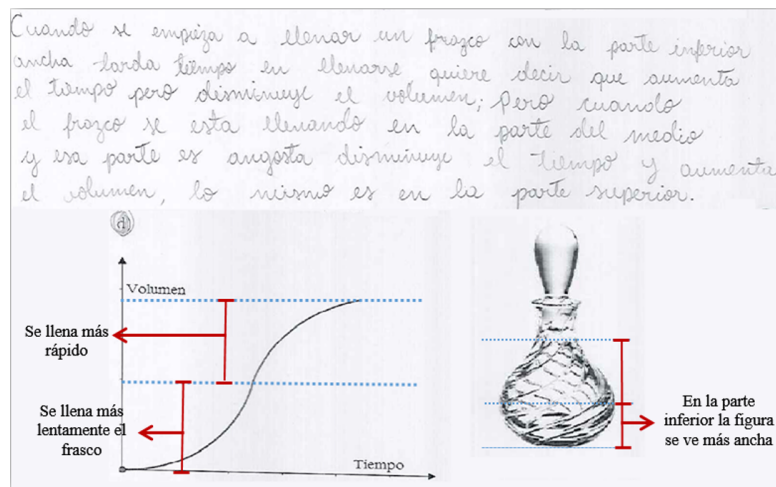 Cuando se empieza a llenar un frazco con la parte inferior
ancha tarda tiempo en llenarse quiere decir que aumenta
el tiempo pero disminuye el volumen; Pero cuando
el frazco se esta llenando en la parte del medio
y esa parte es angosta disminuye el tiempo y aumenta
el volumen, lo mismo es en la parte superior.
d
Volumen
Se llena más
rápido
Se llena más
lentamente el
frasco
Tiempo
En la parte
inferior la figura
se ve más ancha